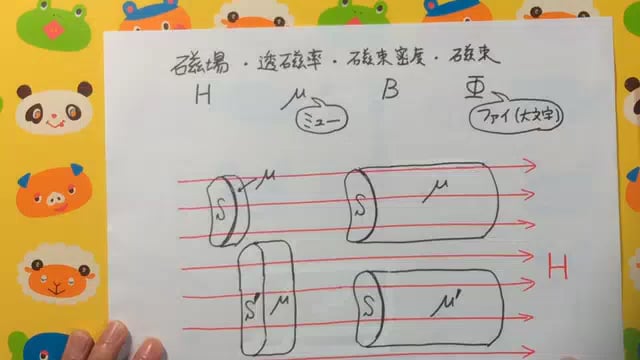 磁場・透磁率・磁束密度・磁束
H μ B Φ
ミュー ファイ(大文字)
S μ S μ
H
S' μ S μ'